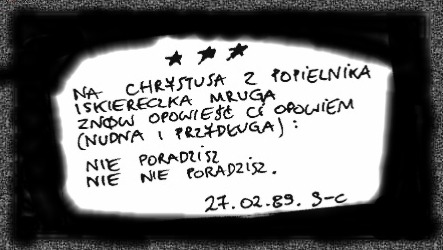 ★ ★ ★
NA CHRYSTUSA Z POPIELNIKA
ISKIERECZKA MRUGA
ZNÓW OPOWIEŚĆ CI OPOWIEM
(NUDNA I PRZYDŁUGA):
NIE PORADZISZ
NIE NIE PORADZISZ.
27.02.89. S-C